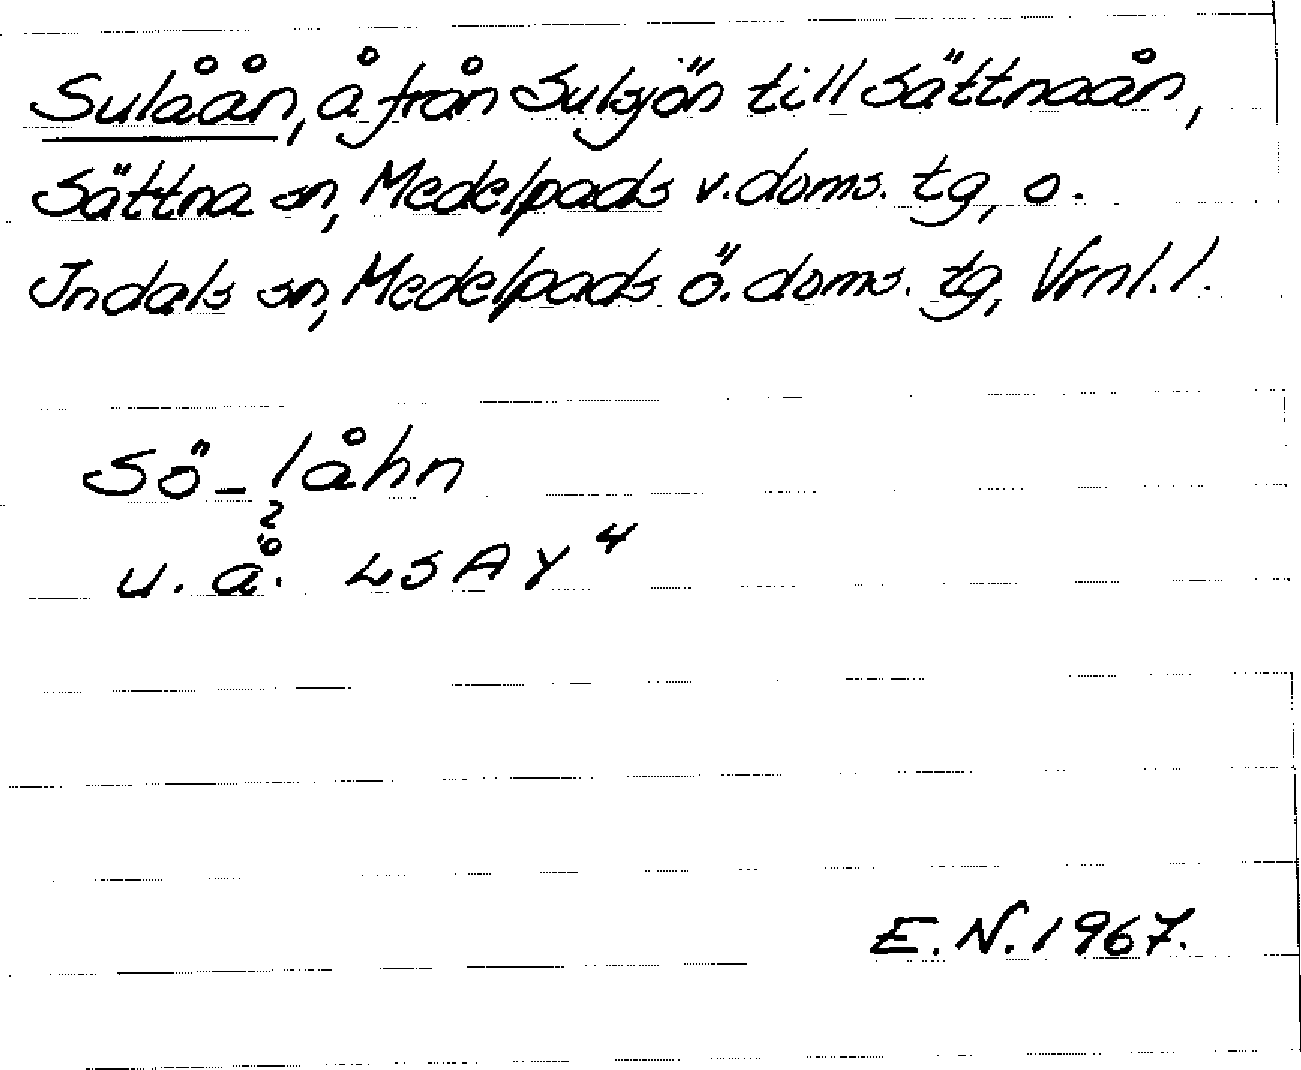 Sulåån, å från Sulsjön till Sättnaån,
Sättna sn, Medelpads v. doms. tg, o.
Indals sn, Medelpads ö. doms. tg, Vrnl. l.
Sö-låhn
2
u. å. LSA Y4
E. N. 1967.